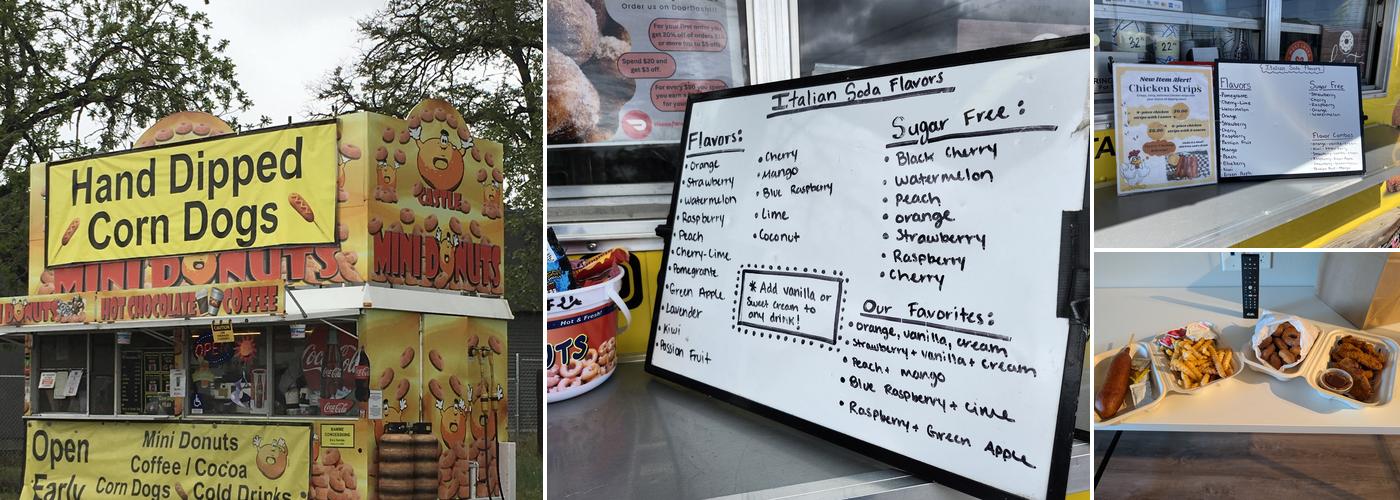 Hand Dipped
Corn Dogs
CASTLE
MINI DONUTS
MINI DONUTS
DONUTS
HOT CHOCOLATE
COFFEE
CAUTION
OPEN
Coca-Cola
Coca-Cola
Open
Early
Mini Donuts
Coffee / Cocoa
Corn Dogs
Cold Drinks
Order us on DoorDash!!!
For your first order you
get 20% off of orders
or more (up to $5 off).
Spend $20 and
get $3 off.
For every $
you earn
Italian Soda Flavors
Flavors:
• Orange
• Strawberry
• Watermelon
• Raspberry
• Peach
• Cherry-Lime
• Pomegranate
• Green Apple
• Lavender
• Kiwi
• Passion Fruit
• Cherry
• Mango
• Blue Raspberry
• Lime
• Coconut
* Add vanilla or
Sweet cream to
any drink!
Sugar Free:
• Black Cherry
• Watermelon
• peach
• orange
• Strawberry
• Raspberry
• Cherry
Our Favorites:
• orange, vanilla, cream
• Strawberry + vanilla + cream
• Peach + mango
• Blue Raspberry + Lime
• Raspberry + Green Apple
Hot & Fresh!
UTS
32
22
New Item Alert!
Chicken Strips
Italian Soda Flavors
Flavors
Pomegranate
Cherry-Lime
Watermelon
Orange
Strawberry
Cherry
Raspberry
Passion Fruit
Mango
Peach
Blueberry
Kiwi
Green Apple
Sugar Free
Strawberry
Cherry
Raspberry
Orange
Watermelon
Flavor Combos